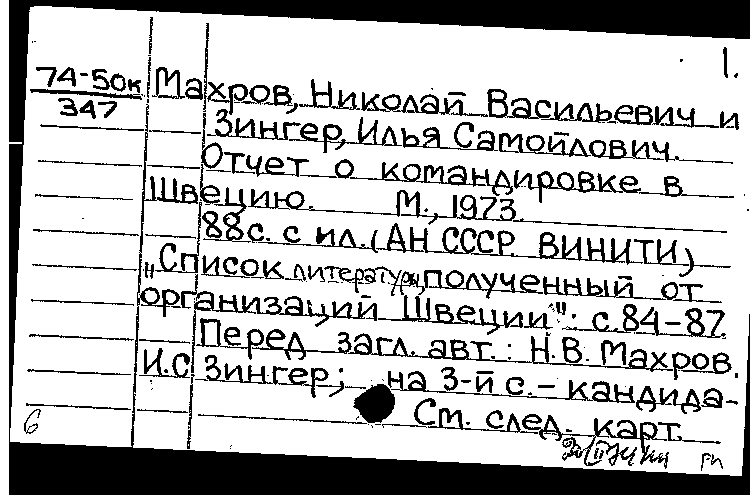 1.
74-50к Махров, Николай Васильевич и
347 Зингер, Илья Самойлович.
Отчет о командировке в
Швецию. М., 1973.
88с. с ил. (АН СССР. ВИНИТИ)
„Список литературы, полученный от
организаций Швеции": с.84-87.
Перед загл. авт.: Н.В. Махров.
И.С Зингер; на 3-й с. - кандида-
См. след. карт.
6